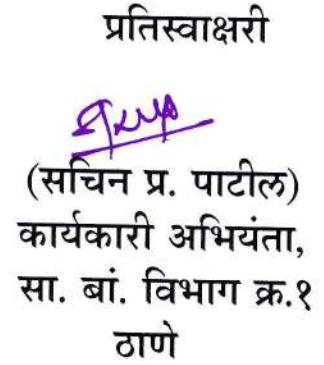 प्रतिस्वाक्षरी
(सचिन प्र. पाटील)
कार्यकारी अभियंता,
सा. बां. विभाग क्र.१
ठाणे